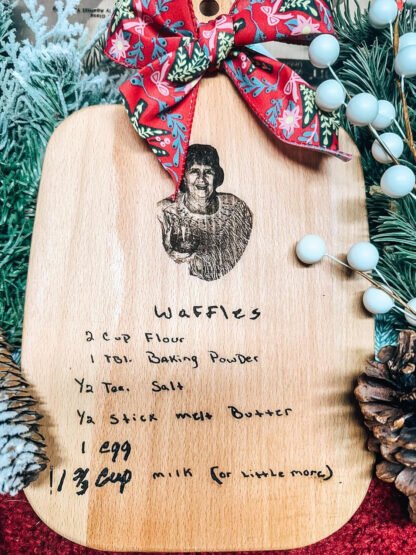 Waffles
2 Cup Flour
1 Tbl. Baking Powder
1/2 Tea. Salt
1/2 Stick melt Butter
1 Egg
1 2/3 Cup milk (or Little more)